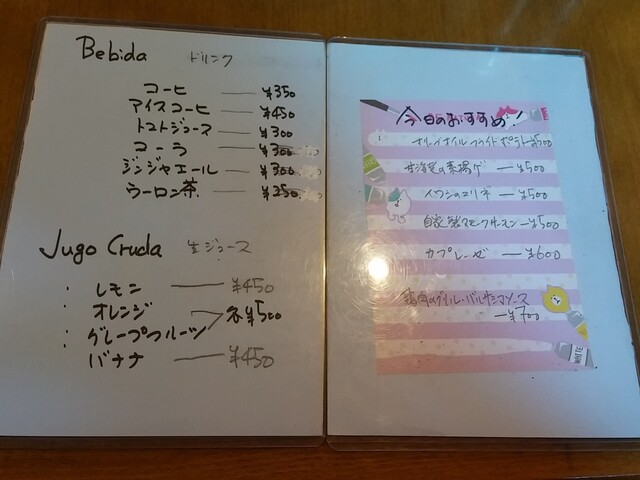 Bebida ドリンク
コーヒ ¥350
アイスコーヒ ¥450
トマトジュース ¥300
コーラ ¥300
ジンジャエール ¥300
ウーロン茶 ¥250
Jugo Cruda 生ジュース
レモン ¥450
オレンジ 各¥500
グレープフルーツ
バナナ ¥450
今日のおすすめ!
オリーブオイルフライドポテト ¥500
の素揚げ ¥500
イワシのマリネ ¥500
自家製スモークサーモン ¥500
カプレーゼ ¥600
鶏肉のグリル・バルサミコソース
¥700
WHITE